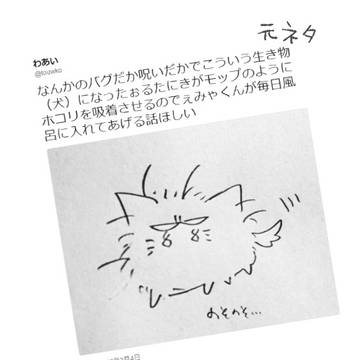 元ネタ
わあい
@touwako
なんかのバグだか呪いだかでこういう生き物
（犬）になったぉるたにきがモップのように
ホコリを吸着させるのでぇみゃくんが毎日風
呂に入れてあげる話ほしい
のそのそ…
月4日